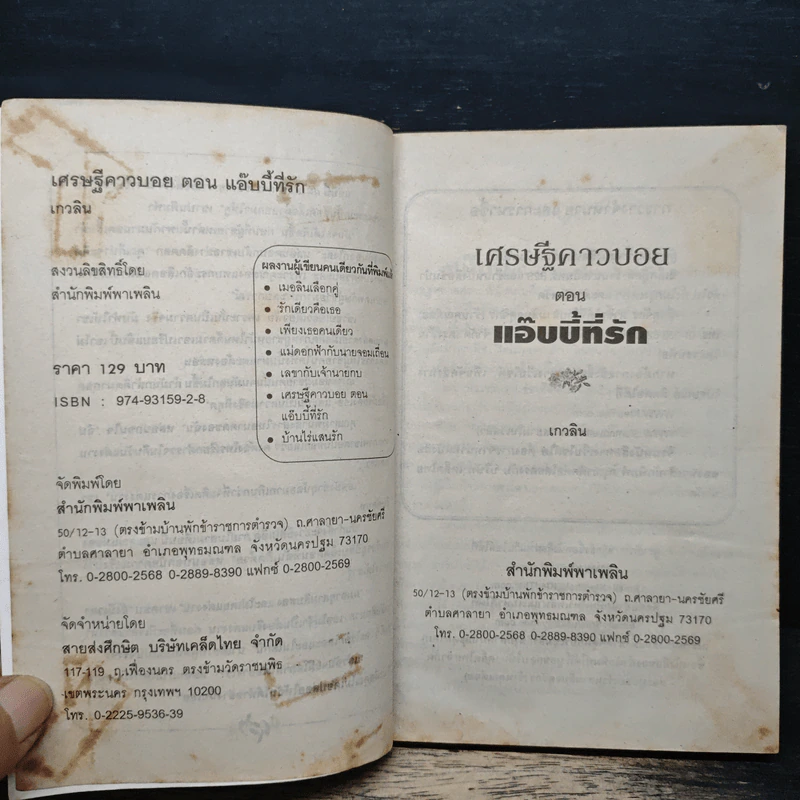 เศรษฐีคาวบอย ตอน แอ๊บบี้ที่รัก
เกวลิน
สงวนลิขสิทธิ์โดย
สำนักพิมพ์พาเพลิน
ราคา 129 บาท
ISBN : 974-93159-2-8
ผลงานผู้เขียนคนเดียวกันที่พิมพ์แล้ว
• เมอลินเลือกคู่
• รักเดียวคือเธอ
• เพียงเธอคนเดียว
• แม่ดอกฟ้ากับนายจอมเถื่อน
• เลขากับเจ้านายกบ
• เศรษฐีคาวบอย ตอน
แอ๊บบี้ที่รัก
• บ้านไร่แสนรัก
จัดพิมพ์โดย
สำนักพิมพ์พาเพลิน
50/12-13 (ตรงข้ามบ้านพักข้าราชการตำรวจ) ถ.ศาลายา-นครชัยศรี
ตำบลศาลายา อำเภอพุทธมณฑล จังหวัดนครปฐม 73170
โทร. 0-2800-2568 0-2889-8390 แฟกซ์ 0-2800-2569
จัดจำหน่ายโดย
สายส่งศึกษิต บริษัทเคล็ดไทย จำกัด
117-119 ถ.เฟื่องนคร ตรงข้ามวัดราชบพิธ
เขตพระนคร กรุงเทพฯ 10200
โทร. 0-2225-9536-39
เศรษฐีคาวบอย
ตอน
แอ๊บบี้ที่รัก
เกวลิน
สำนักพิมพ์พาเพลิน
50/12-13 (ตรงข้ามบ้านพักข้าราชการตำรวจ) ถ.ศาลายา-นครชัยศรี
ตำบลศาลายา อำเภอพุทธมณฑล จังหวัดนครปฐม 73170
โทร. 0-2800-2568 0-2889-8390 แฟกซ์ 0-2800-2569